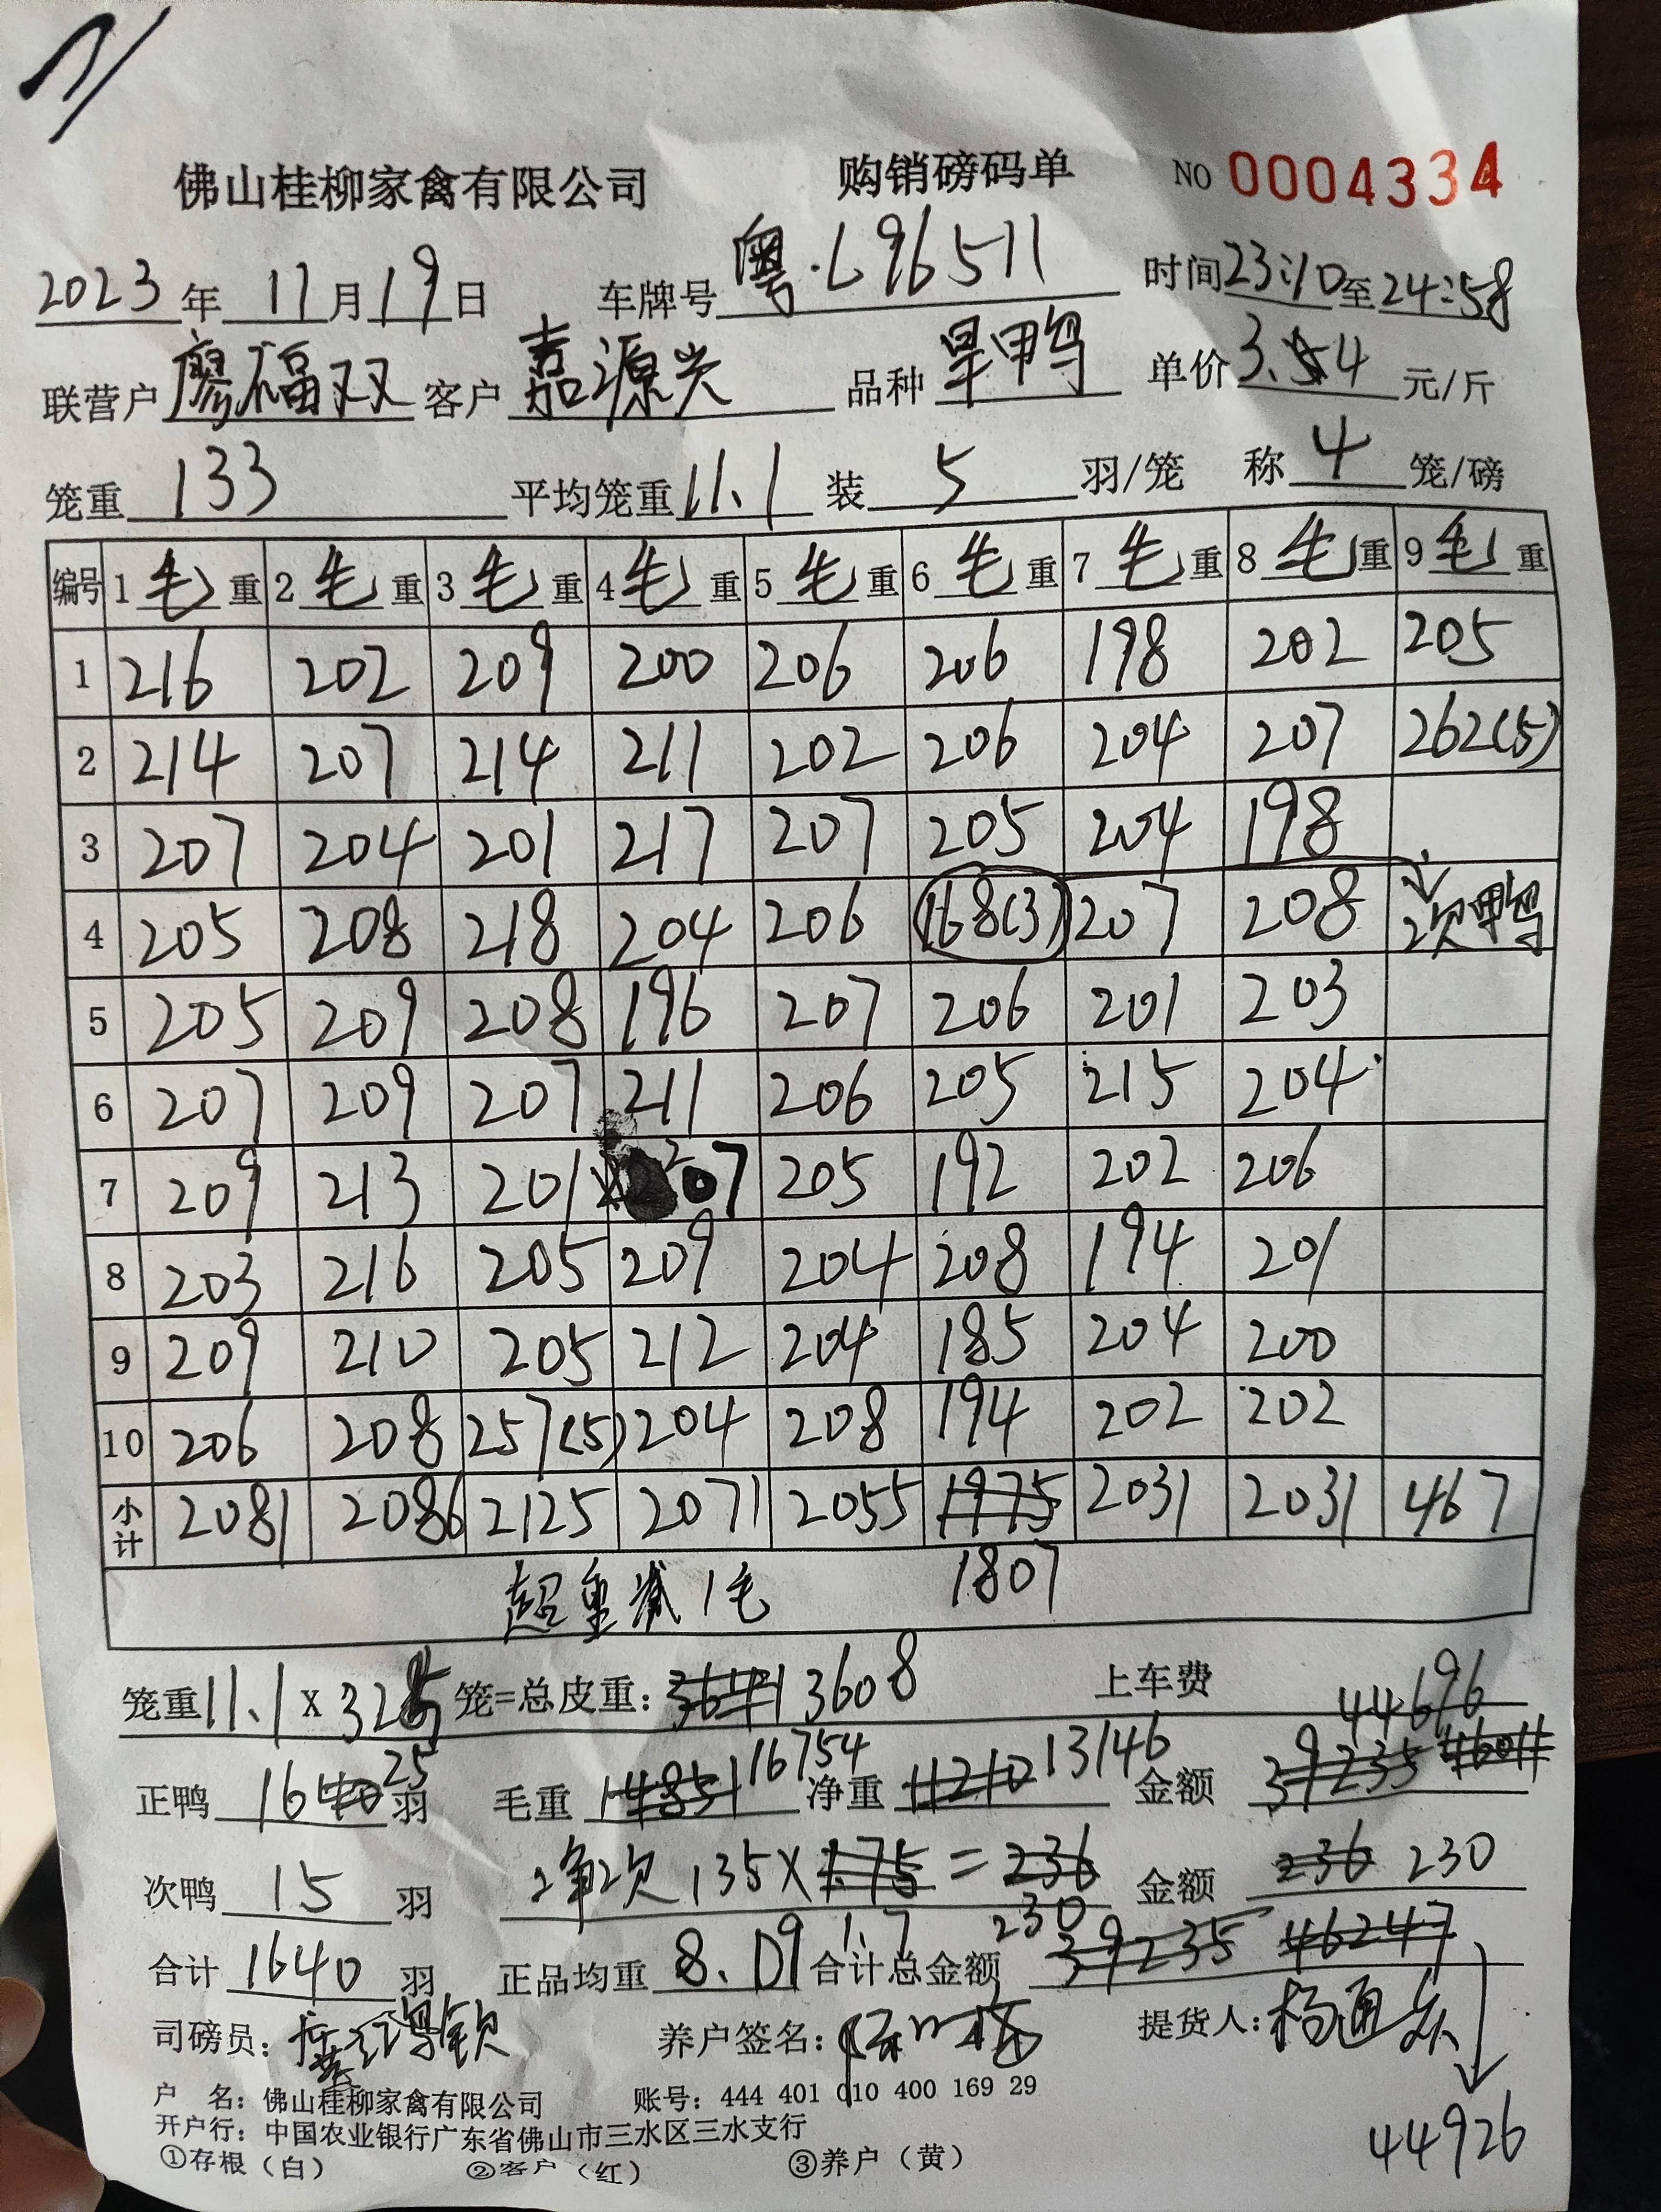 佛山桂柳家禽有限公司 购销磅码单 NO 0004334
2023年11月19日 车牌号 粤·L96511 时间23:10至24:58
联营户 廖福双 客户 嘉源兴 品种 旱甲鸭 单价3.54元/斤
笼重 133 平均笼重11.1 装 5 羽/笼 称 4 笼/磅
编号 1毛重 2毛重 3毛重 4毛重 5毛重 6毛重 7毛重 8毛重 9毛重
1 216 202 209 200 206 206 198 202 205
2 214 207 214 211 202 206 204 207 262(5)
3 207 204 201 217 207 205 204 198
4 205 208 218 204 206 168(3) 207 208 次甲鸭
5 205 209 208 196 207 206 201 203
6 207 209 207 211 206 205 215 204
7 209 213 201 207 205 192 202 206
8 203 216 205 209 204 208 194 201
9 209 210 205 212 204 185 204 200
10 206 208 257(5) 204 208 194 202 202
小计 2081 2086 2125 2071 2055 1975 2031 2031 467
超重减1毛 1807
笼重11.1 x 325 笼=总皮重: 3641 3608 上车费
44696
正鸭 1640 25 羽 毛重 14851 16754 净重 11210 13146 金额 39235 46011
次鸭 15 羽 净次 135 x 1.75 = 236 金额 236 230
1.7 230
合计 1640 羽 正品均重 8.09 合计总金额 39235 46247
司磅员: 养户签名: 提货人: 杨通众
户 名: 佛山桂柳家禽有限公司 账号: 444 401 010 400 169 29
开户行: 中国农业银行广东省佛山市三水区三水支行
44926
①存根(白) ②客户(红) ③养户(黄)